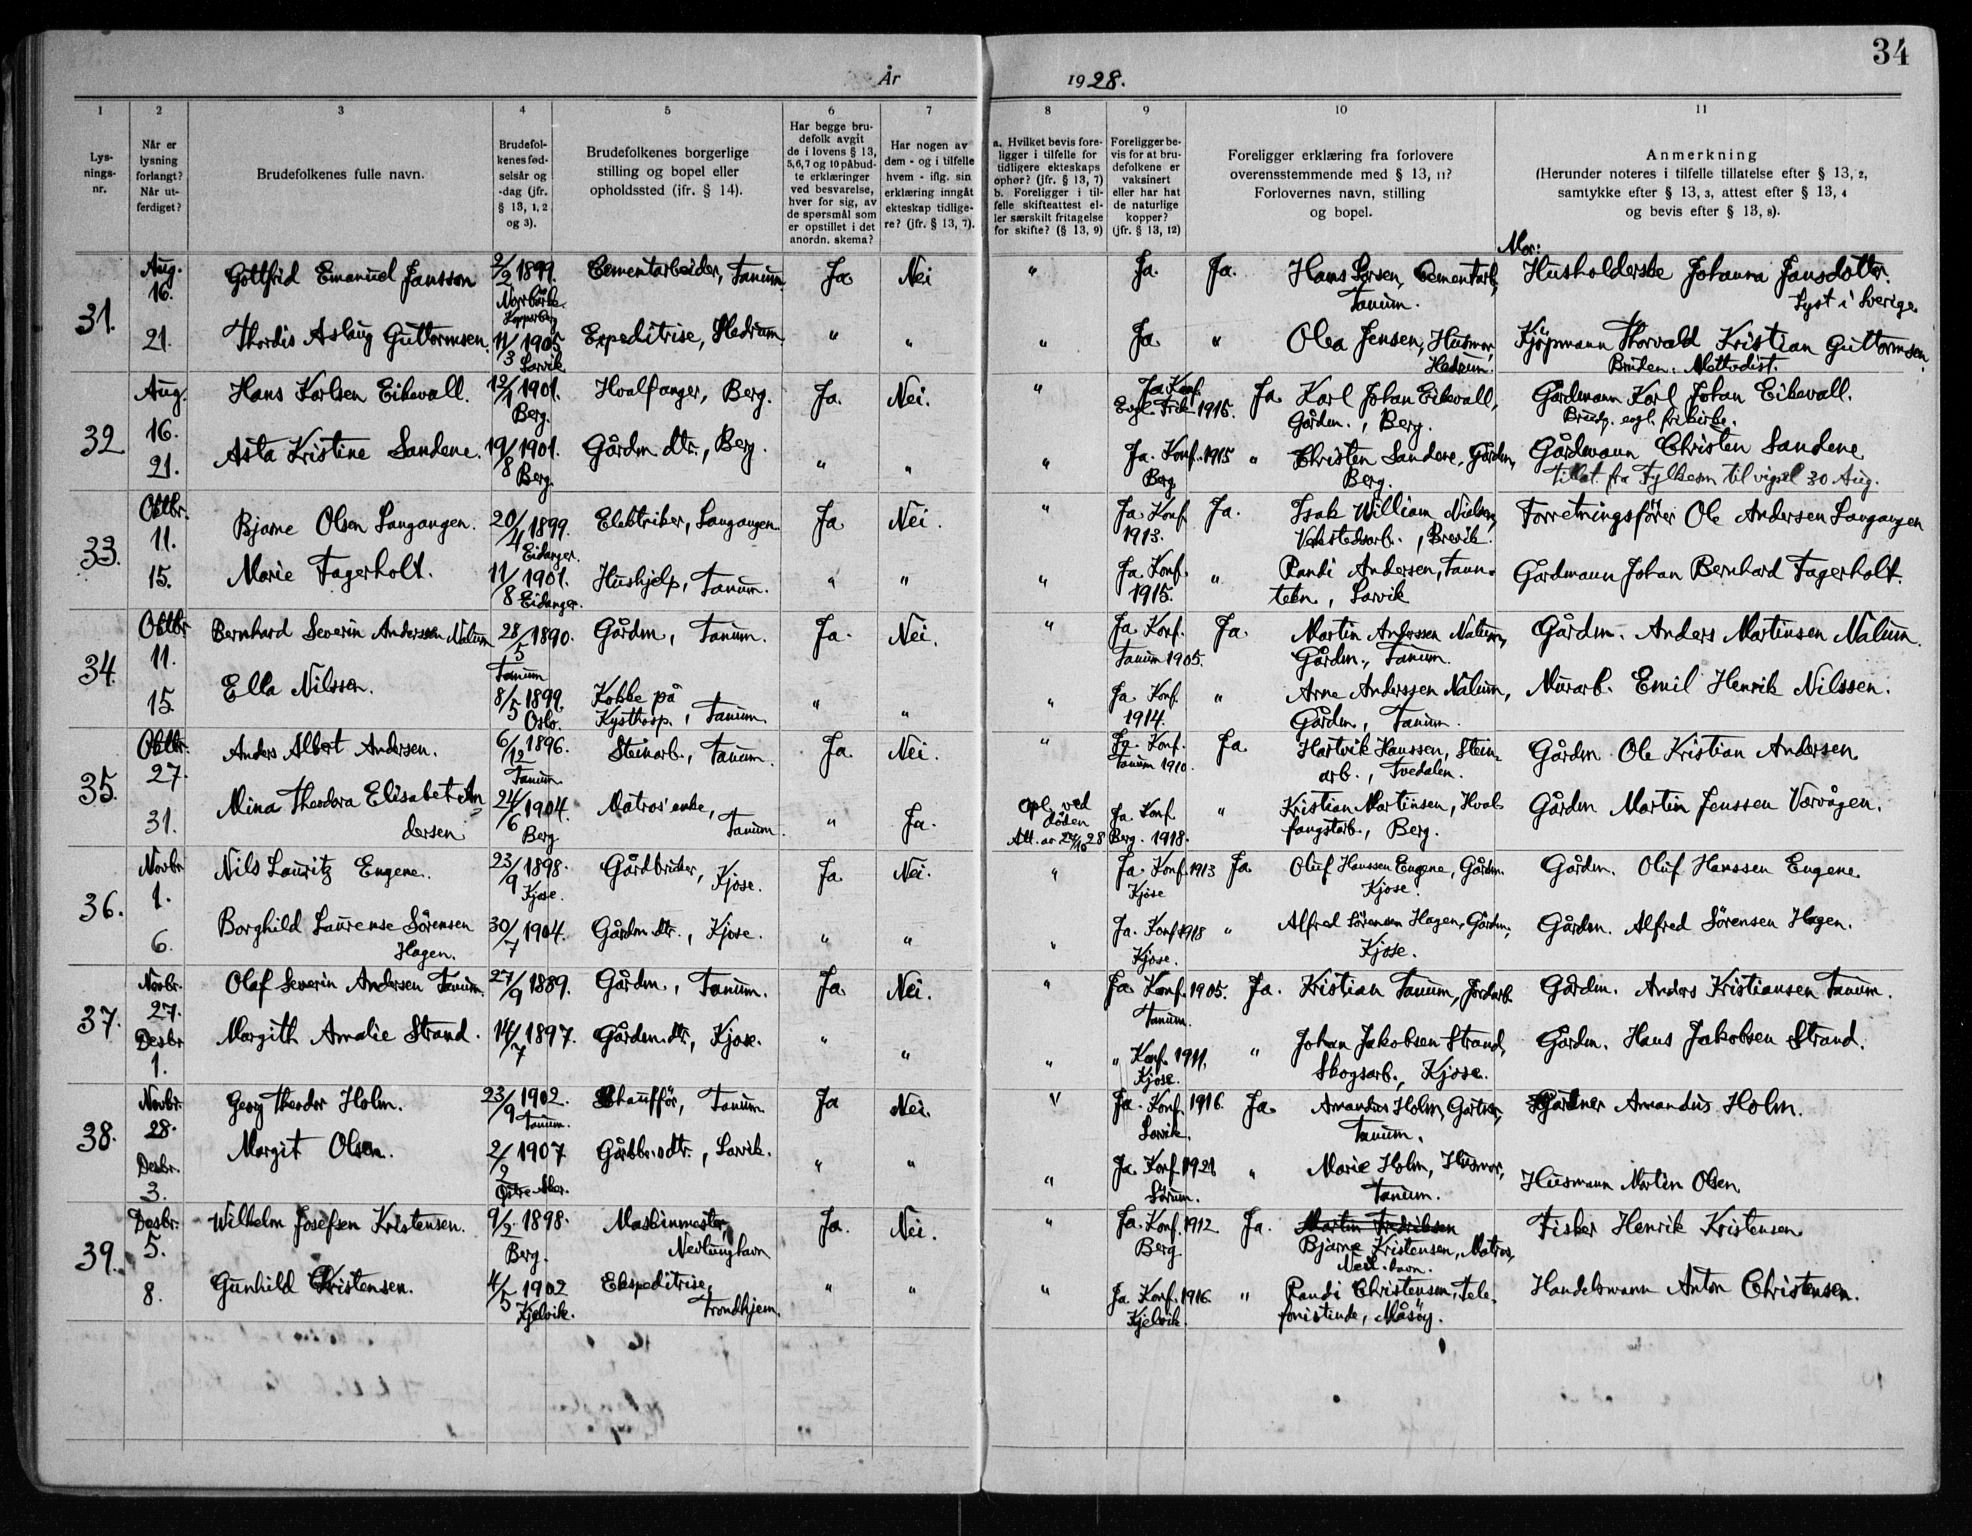 34
År 1928.
1 2 3 4 5 6 7 8 9 10 11
Lys-
nings-
nr.
Når er
lysning
forlangt?
Når ut-
ferdiget?
Brudefolkenes fulle navn.
Brudefol-
kenes fød-
selsår og
-dag (jfr.
§ 13, 1, 2
og 3).
Brudefolkenes borgerlige
stilling og bopel eller
opholdssted (ifr. § 14).
Har begge bru-
defolk avgit
de i lovens § 13,
5,6,7 og 10 påbud-
te erklæringer
ved besvarelse,
hver for sig, av
de spørsmål som
er opstillet i det
anordn. skema?
Har nogen av
dem - og i tilfelle
hvem - iflg. sin
erklæring inngåt
ekteskap tidlige-
re? (jfr. § 13, 7).
a. Hvilket bevis fore-
ligger i tilfelle for
tidligere ekteskaps
ophør? (jfr. § 13, 7)
b. Foreligger i til-
felle skifteattest el-
ler særskilt fritagelse
for skifte? (§ 13, 9)
Foreligger be-
vis for at bru-
defolkene er
vaksinert
eller har hat
de naturlige
kopper?
(jfr. § 13, 12)
Foreligger erklæring fra forlovere
overensstemmende med § 13, 11?
Forlovernes navn, stilling
og bopel.
Anmerkning
(Herunder noteres i tilfelle tillatelse efter § 13, 2,
samtykke efter § 13, 3, attest efter § 13, 4
og bevis efter § 13, 8).
31.
Aug.
16.
21.
Gottfrid Emanuel Jansson
2/2 1899.
Norrbärke
Kopperberg
Cementarbeider, Tanum
Ja
Nei
"
Ja.
Ja.
Hans Larsen, Cementarb,
Tanum.
Mor:
Husholderske Johanna Jansdotter
Lyst i Sverige.
Thordis Aslaug Guttormsen.
11/3 1905
Larvik
Expeditrise, Hedrum
"
"
"
Ja
"
Olea Jensen, Husmor,
Hedrum.
Kjöpmann Thorvald Kristian Guttormsen.
Bruden: Methodist.
32
Aug.
16.
21.
Hans Karlsen Eikevall.
12/1 1901.
Berg.
Hvalfanger, Berg.
Ja.
Nei.
"
Ja Konf.
Evgl. Frik. 1915.
Ja
Karl Johan Eikevall,
Gårdm., Berg.
Gårdmann Karl Johan Eikevall.
Brudg. evgl. frikirke.
Asta Kristine Sandene.
19/8 1901.
Berg
Gårdm. dtr., Berg.
"
"
"
Ja. Konf. 1915
Berg
"
Christen Sandene, Gårdm,
Berg.
Gårdmann Christen Sandene
Tillat. fra Fylkesm til vigsel 30 Aug.
33.
Oktbr.
11.
15.
Bjarne Olsen Langangen.
20/4 1899.
Eidanger.
Elektriker, Langangen.
Ja
Nei.
"
Ja Konf
1913.
Ja.
Isak William Nielsen,
Verkstedsarb., Brevik.
Forretningsförer Ole Andersen Langangen
Marie Fagerholt.
11/8 1901.
Eidanger.
Hushjelp, Tanum.
"
"
"
Ja. Konf.
1915.
"
Randi Andersen, Tann-
tekn, Larvik
Gårdmann Johan Bernhard Fagerholt.
34.
Oktbr
11.
15.
Bernhard Severin Anderssen Nalum
28/5 1890.
Tanum
Gårdm, Tanum.
Ja.
Nei.
"
Ja Konf.
Tanum 1905.
Ja.
Martin Anderssen Nalum,
Gårdm., Tanum.
Gårdm. Anders Martinsen Nalum.
Ella Nilssen.
8/5 1899.
Oslo.
Kokke på
Kysthosp., Tanum
"
"
"
Ja Konf
1914.
"
Arne Anderssen Nalum,
Gårdm, Tanum.
Murarb. Emil Henrik Nilssen.
35.
Oktbr.
27.
31.
Anders Albert Andersen.
6/12 1896.
Tanum
Steinarb., Tanum.
Ja
Nei.
"
Ja. Konf.
Tanum 1910.
Ja.
Hartvik Hanssen, Stein-
arb., Tvedalen.
Gårdm. Ole Kristian Andersen
Mina Theodora Elisabet An-
dersen
24/6 1904.
Berg
Matros' enke,
Tanum
"
Ja.
Opl. ved
döden
Att. av 27/10 28
Ja Konf
Berg. 1918.
"
Kristian Martinsen, Hval-
fangstarb., Berg.
Gårdm Martin Jenssen Varvågen.
36.
Novbr
1.
6.
Nils Lauritz Eugene.
23/9 1898.
Kjose.
Gårdbruker, Kjose.
Ja
Nei.
"
Ja. Konf. 1913
Kjose
Ja
Oluf Hanssen Eugene, Gårdm.
Kjose.
Gårdm. Oluf Hanssen Eugene
Borghild Laurense Sörensen
Hagen.
30/7 1904.
Gårdm. dtr., Kjose.
"
"
"
Ja. Konf 1918
Kjose.
"
Alfred Sörensen Hagen, Gårdm,
Kjose.
Gårdm. Alfred Sörensen Hagen.
37.
Novbr.
27.
Desbr
1.
Olaf Severin Andersen Tanum.
27/9 1889.
Gårdm., Tanum.
Ja
Nei.
"
Ja Konf. 1905.
Tanum.
Ja.
Kristian Tanum, Jordarb.
Gårdm. Anders Kristiansen Tanum.
Margith Amalie Strand.
14/7 1897.
Gårdm. dtr, Kjose.
"
"
"
" Konf. 1911.
Kjose.
"
Johan Jakobsen Strand,
Skogsarb., Kjose.
Gårdm. Hans Jakobsen Strand.
38.
Novbr.
28.
Desbr.
3.
Georg Theodor Holm.
23/9 1902.
Tanum.
Chaufför, Tanum.
Ja
Nei.
"
Ja. Konf. 1916.
Larvik.
Ja.
Amandus Holm, Gartner,
Tanum.
Gartner Amandus Holm.
Margit Olsen.
2/2 1907
Östre Aker.
Gårdbr. dtr., Larvik.
"
"
"
Ja Konf 1921
Sörum.
"
Marie Holm, Husmor,
Tanum.
Husmann Martin Olsen
39.
Desbr.
5.
8.
Wilhelm Josefsen Kristensen.
9/2 1898.
Berg.
Maskinmester,
Nevlunghavn
Ja.
Nei.
"
Ja. Konf. 1912
Berg
Ja.
Martin Fredriksen
Bjarne Kristensen, Matros,
Nevl. havn.
Fisker Henrik Kristensen
Gunhild Christensen.
4/5 1902
Kjelvik.
Ekspeditrise,
Trondhjem.
"
"
"
Ja Konf. 1916.
Kjelvik.
"
Randi Christensen, Tele-
fonistinde, Måsöy.
Handelsmann Anton Christensen.